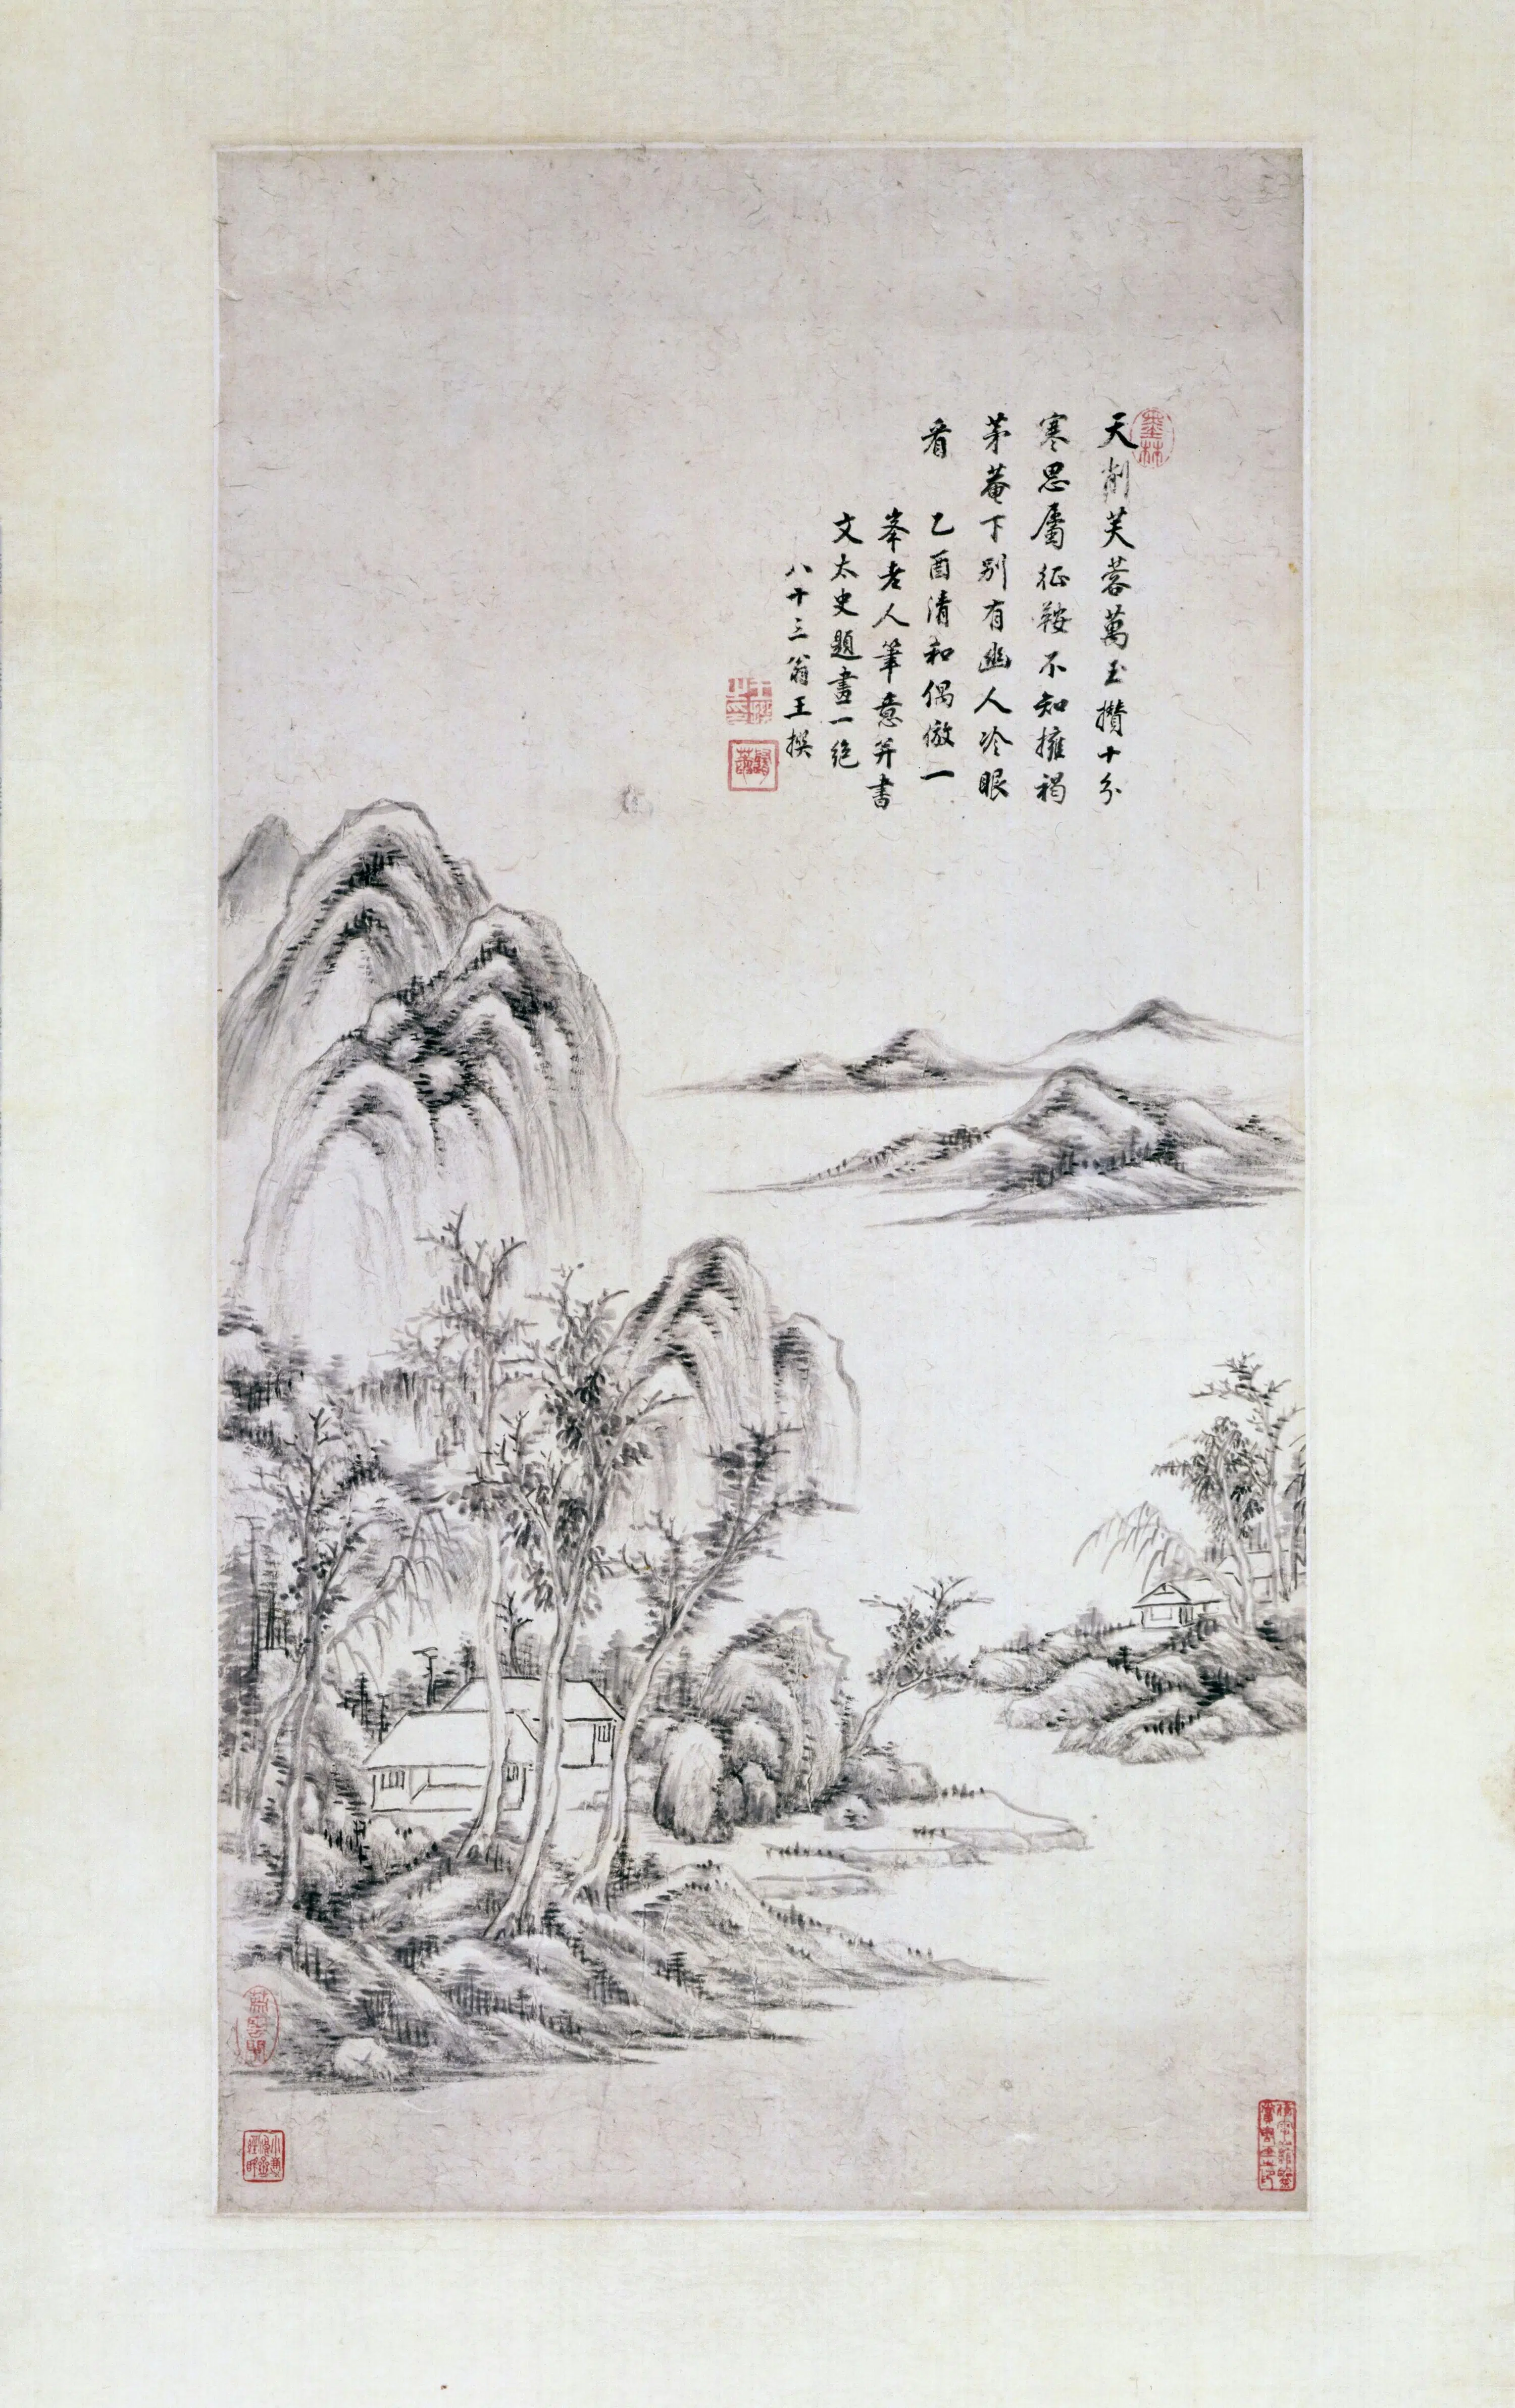 天削芙蓉萬玉攢十分
寒思屬征鞍不知擁褐
茅菴下別有幽人冷眼
看
乙酉清和偶倣一
峯老人筆意並書
文太史題畫一絕
八十三翁王撰
墨林
王撰之印